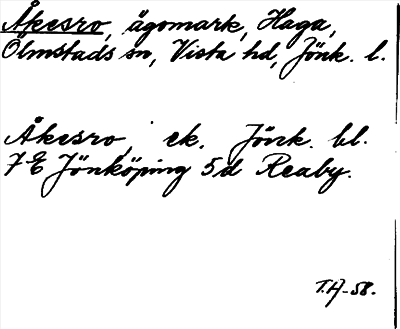 Åkesro, ägomark, Haga,
Ölmstads sn, Vista hd, Jönk. l.
Åkesro, ek. Jönk. bl.
7 E Jönköping 5d Reaby.
T.H-58.